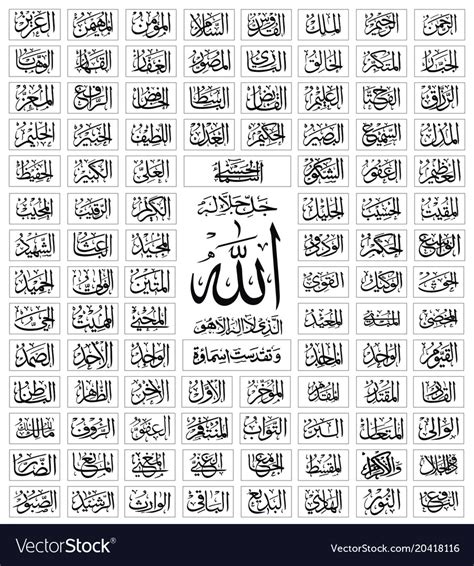 الرحمن الرحيم الملك القدوس السلام المؤمن المهيمن العزيز
الجبار المتكبر الخالق البارئ المصور الغفار القهار الوهاب
الرزاق الفتاح العليم القابض الباسط الخافض الرافع المعز
المذل السميع البصير الحكيم العدل اللطيف الخبير الحليم
العظيم الغفور الشكور أسماء الحسنى العلي الكبير الحفيظ
المقيت الحسيب الجليل جل جلاله الكريم الرقيب المجيب
الواسع الحكيم الودود الله المجيد الباعث الشهيد
الحق الوكيل القوي المتين الولي الحميد
المحصي المبدئ المعيد الذي لا إله إلا هو المحيي المميت الحي
القيوم الواجد الماجد وتقدست أسماؤه الواحد الأحد الصمد
القادر المقتدر المقدم المؤخر الأول الآخر الظاهر الباطن
الوالي المتعال البر التواب المنتقم العفو الرؤوف مالك الملك
ذو الجلال والإكرام المقسط الجامع الغني المغني المانع الضار
النافع النور الهادي البديع الباقي الوارث الرشيد الصبور
VectorStock®
VectorStock.com/20418116